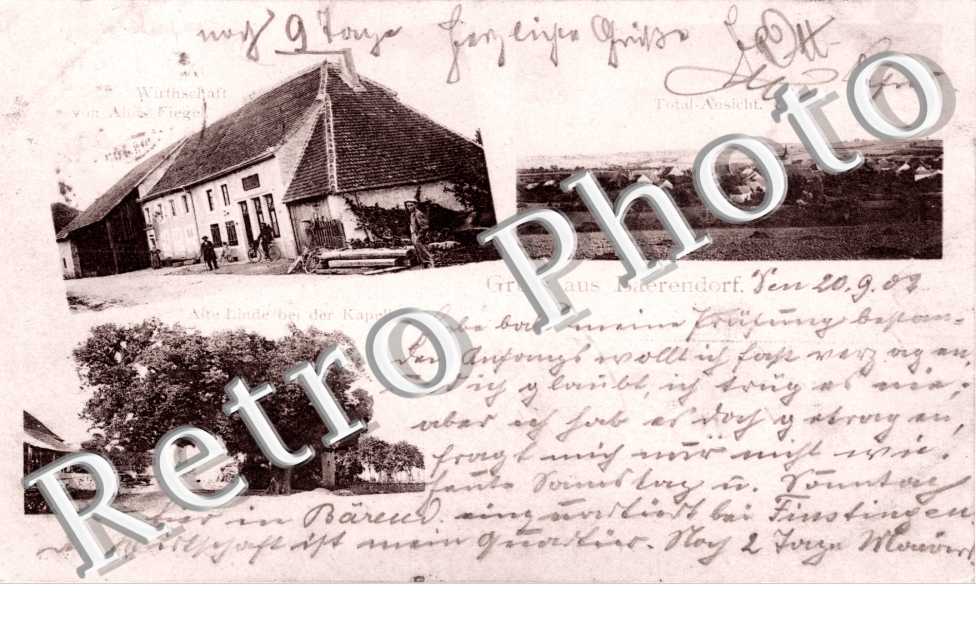 noch 9 Tage herzliche Grüße
Wirthschaft
von Fiegel
Total-Ansicht.
aus Baerendorf. Den 20.9.02
Alte Linde bei der Kapelle
meine Prüfung bestan-
den Anfangs wollt ich fast verzagen
ich glaubt, ich trüg es nie,
aber ich hab es doch getragen,
fragt mich nur nicht wie.
Heute Samstag u. Sonntag
in Bärend. einquartiert bei Finstingen
ist mein Quartier. Noch 2 Tage Manöver
Retro Photo